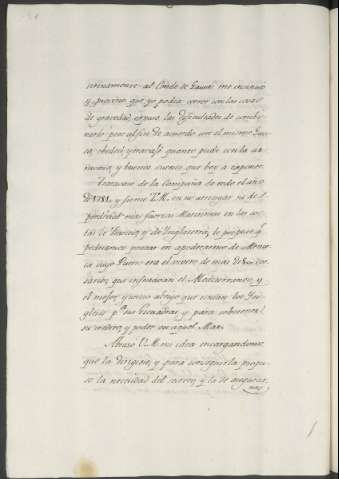 ultimamente al Conde de Lauri me encontró
y previno, que yo podia correr con las cosas
de gravedad, expuse las dificultades de combi-
narlo; pero al fin de acuerdo con el mismo
obedecí, y trabajé quanto pude con la
y buenos sucesos que boy á exponer.
Tratavase de la Campaña de todo el año
de 1781, y firme V.M. en no arriesgar ni des-
perdiciar mas fuerzas Maritimas en las cos-
tas de Francia, y de Inglaterra, le propuse q.
podriamos pensar en apoderarnos de Menor-
ca cuyo Puerto era el nido de mas de cor-
sarios, que infestaban el Mediterraneo, y
el mejor, y unico abrigo que tenian los In-
gleses p.ª sus Escuadras, y para sobstener
su credito, y poder en aquel Mar.
Abrazó V.M. mi idea encargandome
que la dirigiese, y para conseguirla propu-
se la necesidad del secreto, y la de asegurar